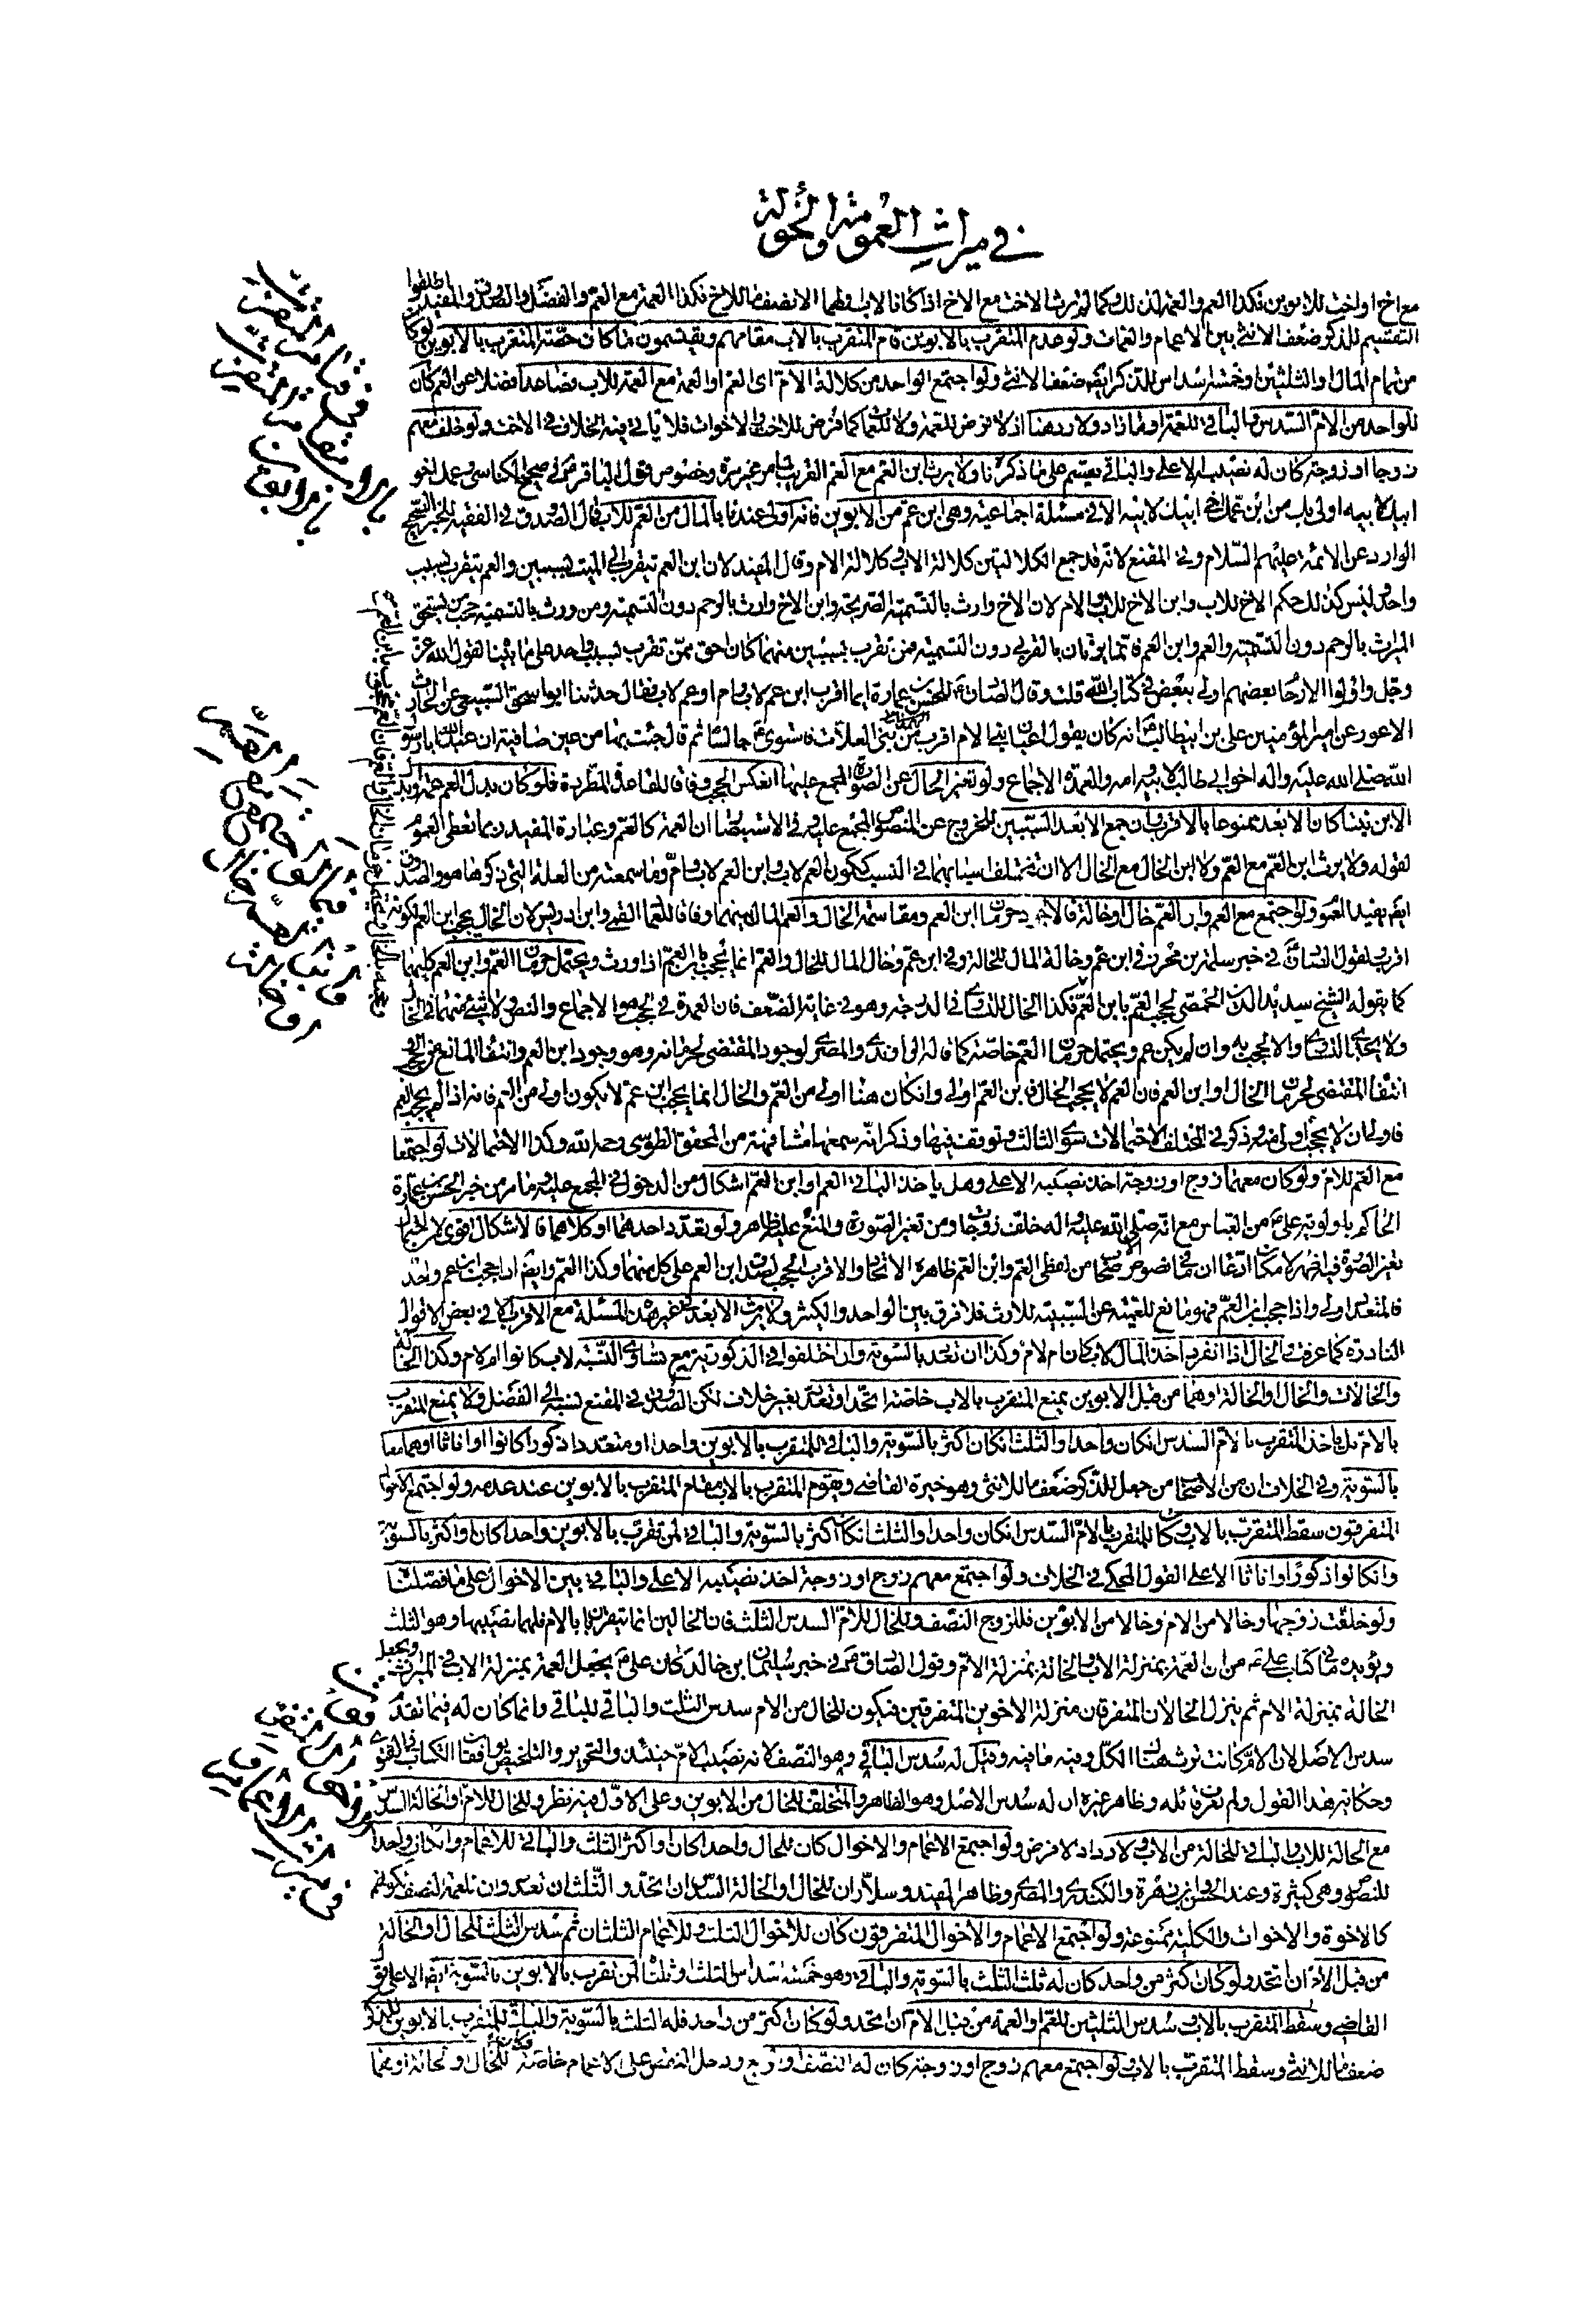 في ميراث العمومة والخؤلة
مع اخ او اخت للابوين فكذا العم والعمة لذلك وكما لم يرث الاخت مع الاخ اذا كانا لاب ولهما الا نصف ما للاخ فكذا العمة مع العم والفضل والصدوق والمفيد اطلقوا
التقسيم للذكر ضعف الانثى بين الاعمام والعمات ولو عدم المتقرب بالابوين قام المتقرب بالاب مقامهم ويقتسمون ما كان حصة المتقرب بالابوين لو كان
من تمام المال او الثلثين او خمسة اسداس للذكر ايضا ضعف الانثى ولو اجتمع الواحد من كلالة الام اي العم او العمة مع العمة للاب فصاعدا فضلا عن العم كان
للواحد من الام السدس والباقي للعمة او ما زاد ولا رد هنا اذ لا فرض للعمة ولا للعمات كما فرض للاخت والاخوات فلا ياتي فيه الخلاف في الاخت ولو خلف معهم
زوجا او زوجة كان له نصيبه الاعلى والباقي يقسم على ما ذكرنا ولا يرث ابن العم مع العم القريب لما مر غير مرة وخصوص قول الباقر في صحيح الكناسي وعمك اخو
ابيك لابيه اولى بك من ابن عمك اخي ابيك لابيه الا في مسئلة اجماعية وهي ابن عم من الابوين فانه اولى عندنا بالمال من العم للاب قال الصدوق في الفقيه للخبر الصحيح
الوارد عن الائمة عليهم السلام وفي المقنع لانه قد جمع الكلالتين كلالة الاب وكلالة الام وقال المفيد لان ابن العم يتقرب الى الميت بسببين والعم يتقرب بسبب
واحد وليس كذلك حكم الاخ للاب وابن الاخ للاب والام لان الاخ وارث بالتسمية الصريحة وابن الاخ وارث بالرحم دون التسمية ومن ورث بالتسمية حجب من يستحق
الميراث بالرحم دون التسمية والعم وابن العم فانما يرثان بالقربى دون التسمية فمن تقرب بسببين منهما كان احق ممن تقرب بسبب واحد على ما بينا لقول الله عز
وجل واولوا الارحام بعضهم اولى ببعض في كتاب الله قلت وقال الصادق للحسن بن عمارة ايما اقرب ابن عم لاب وام او عم لاب فقال حدثنا ابو اسحق السبيعي عن الحارث
الاعور عن امير المؤمنين علي بن ابيطالب انه كان يقول اعيان بني الام اقرب من بني العلات فاستوى جالسا ثم قال جئت بها من عين صافية ان عبد الله ابا رسول
الله صلى الله عليه واله اخو ابي طالب لابيه وامه والعمدة الاجماع ولو تغير الحال عن الصورة المجمع عليها انعكس الحجب وفاقا للقاعدة المطردة فلو كان بدل العم عمة وبدل
الابن بنتا كان الابعد ممنوعا بالاقرب وان جمع الابعد السببين للخروج عن المنصوص المجمع عليه وفي الاستبصار ان العمة كالعم وعبارة المفيد ربما تعطى العموم
لقوله ولا يرث ابن العم مع العم ولا ابن الخال مع الخال الا ان تختلف اسبابهما في النسب فيكون العم لاب وابن العم لاب وام وما سمعته من العلة التي ذكرها هو والصدوق
ايضا يفيد العموم ولو اجتمع مع العم وابن العم خال او خالة فالاجود حرمان ابن العم ومقاسمة الخال والعم المال بينهما وفاقا للعماد القمي وابن ادريس لان الخال يحجب ابن العم لكونه
اقرب لقول الصادق في خبر سلمة بن محرز في ابن عم وخالة المال للخالة وفي ابن عم وخال المال للخال والعم انما يحجب بابن العم اذا ورث ويحتمل حرمان العم وابن العم كليهما
كما يقوله الشيخ سديد الدين الحمصي لحجب العم بابن العم فكذا الخال المساوي في الدرجة وهو في غاية الضعف فان العمدة في الحجب هو الاجماع والنص ولا شيء منهما في الخال
ولا يحجب المساوي والا لحجب به وان لم يكن عم ويحتمل حرمان العم خاصة كما قاله الراوندي والمصري لوجود المقتضى لحرمانه وهو وجود ابن العم وانتفاء المانع
انتفاء المقتضى لحرمان الخال او ابن العم فان العم لا يحجب الخال فابن العم اولى وان كان هنا اولى من العم والخال انما يحجب ابن عم لا يكون اولى من العم فانه اذا لم يحجب العم
فاولى ان لا يحجب اولى منه وذكر في المختلف الاحتمالات سوى الثالث وتوقف فيها وذكر انه سمعها مشافهة من المحقق الطوسي رحمه الله وكذا الاحتمالات لو اجتمعا
مع العم للام ولو كان معهما زوج او زوجة اخذ نصيبه الاعلى وهل ياخذ الباقي العم او ابن العم اشكال من الدخول في المجمع عليه وما مر من خبر الحسن بن عمارة
الحاكم باولوية علي من العباس مع انه صلى الله عليه واله خلف زوجات ومن تغير الصورة والمنع عليه ظاهر ولو تعدد احدهما او كلاهما فالاشكال اقوى لاحتمال
تغير الصورة فيه اظهر لامكان ادعاء ان في نصوص الاصحاب من لفظي العم وابن العم ظاهره الاتحاد والاقرب الحجب لصدق ابن العم على كل منهما وكذا العم وايضا اذا حجب ابن عم واحد
فالمتعدد اولى واذا حجب ابن العم فهو مانع للعمية عن السببية للارث فلا فرق بين الواحد والكثير ولا يرث الابعد في غير هذه المسئلة مع الاقرب الا في بعض الاقوال
النادرة كما عرفت والخال اذا انفرد اخذ المال لاب كان ام لام وكذا ان تعدد بالسوية وان اختلفوا في الذكورية مع تساوي النسبة لاب كانوا ام لام وكذا الخالة
والخالات والخال او الخالة او هما من قبل الابوين يمنع المتقرب بالاب خاصة اتحد او تعدد بغير خلاف لكن الصدوق في المقنع نسبه الى الفضل ولا يمنع المتقرب
بالام بل ياخذ المتقرب بالام السدس ان كان واحدا والثلث ان كان اكثر بالسوية والباقي للمتقرب بالابوين واحدا او متعددا ذكورا كانوا او اناثا او هما معا
بالسوية وفي الخلاف ان من الاصحاب من جعل للذكر ضعف ما للانثى وهو خيرة القاضي ويقوم المتقرب بالاب مقام المتقرب بالابوين عند عدمه ولو اجتمع الاخوال
المتفرقون سقط المتقرب بالاب وكان للمتقرب بالام السدس ان كان واحدا والثلث ان كان اكثر بالسوية والباقي لمن تقرب بالابوين واحدا كان او اكثر بالسوية
وان كانوا ذكورا واناثا الا على القول المحكي في الخلاف ولو اجتمع معهم زوج او زوجة اخذ نصيبه الاعلى والباقي بين الاخوال على ما فصلنا
ولو خلفت زوجها وخالا من الام وخالا من الابوين فللزوج النصف وللخال للام السدس الثلث فان الخالين انما يتقربان بالام فلهما نصيبها وهو الثلث
ويؤيده ما في كتاب علي من ان العمة بمنزلة الاب والخالة بمنزلة الام وقول الصادق في خبر سليمان ابن خالد كان علي يجعل العمة بمنزلة الاب في الميراث ويجعل
الخالة بمنزلة الام ثم ينزل الخالان المتفرقان منزلة الاخوين المتفرقين فيكون للخال من الام سدس الثلث والباقي للباقي وانما كان له فيما تقدم
سدس الاصل لان الام كانت ترث هناك الكل وفيه ما فيه وقيل له سدس الباقي وهو النصف لانه نصيب الام حينئذ والتحرير والتلخيص يوافقان الكتاب في الفتوى
وحكاية هذا القول ولم نعرف قائله وظاهر غيره ان له سدس الاصل وهو الظاهر والمتخلف للخال من الابوين وعلى الاول فيه نظر وللخال للام او الخالة السدس
مع الخالة للاب والباقي للخالة من الاب ولا رد اذ لا فرض ولو اجتمع الاعمام والاخوال كان للخال واحدا كان او اكثر الثلث والباقي للاعمام وان كان واحدا
للنصوص وهي كثيرة وعند الحسن وابن زهرة والكندري والمصري وظاهر المفيد وسلار ان للخال او الخالة السدس ان اتحد والثلث ان تعدد وان للعمة النصف لكونهم
كالاخوة والاخوات والكلية ممنوعة ولو اجتمع الاعمام والاخوال المتفرقون كان للاخوال الثلث وللاعمام الثلثان ثم سدس الثلث للخال او الخالة
من قبل الام ان اتحد ولو كان اكثر من واحد كان له ثلث الثلث بالسوية والباقي وهو خمسة اسداس الثلث او ثلثاه لمن تقرب بالابوين بالسوية ايضا الا على قول
القاضي وسقط المتقرب بالاب وسدس الثلثين للعم او العمة من قبل الام ان اتحد ولو كان اكثر من واحد فله الثلث بالسوية والباقي للمتقرب بالابوين للذكر
ضعف ما للانثى وسقط المتقرب بالاب ولو اجتمع معهم زوج او زوجة كان له النصف او الربع ودخل النقص على الاعمام خاصة وكان للخال او الخالة او هما